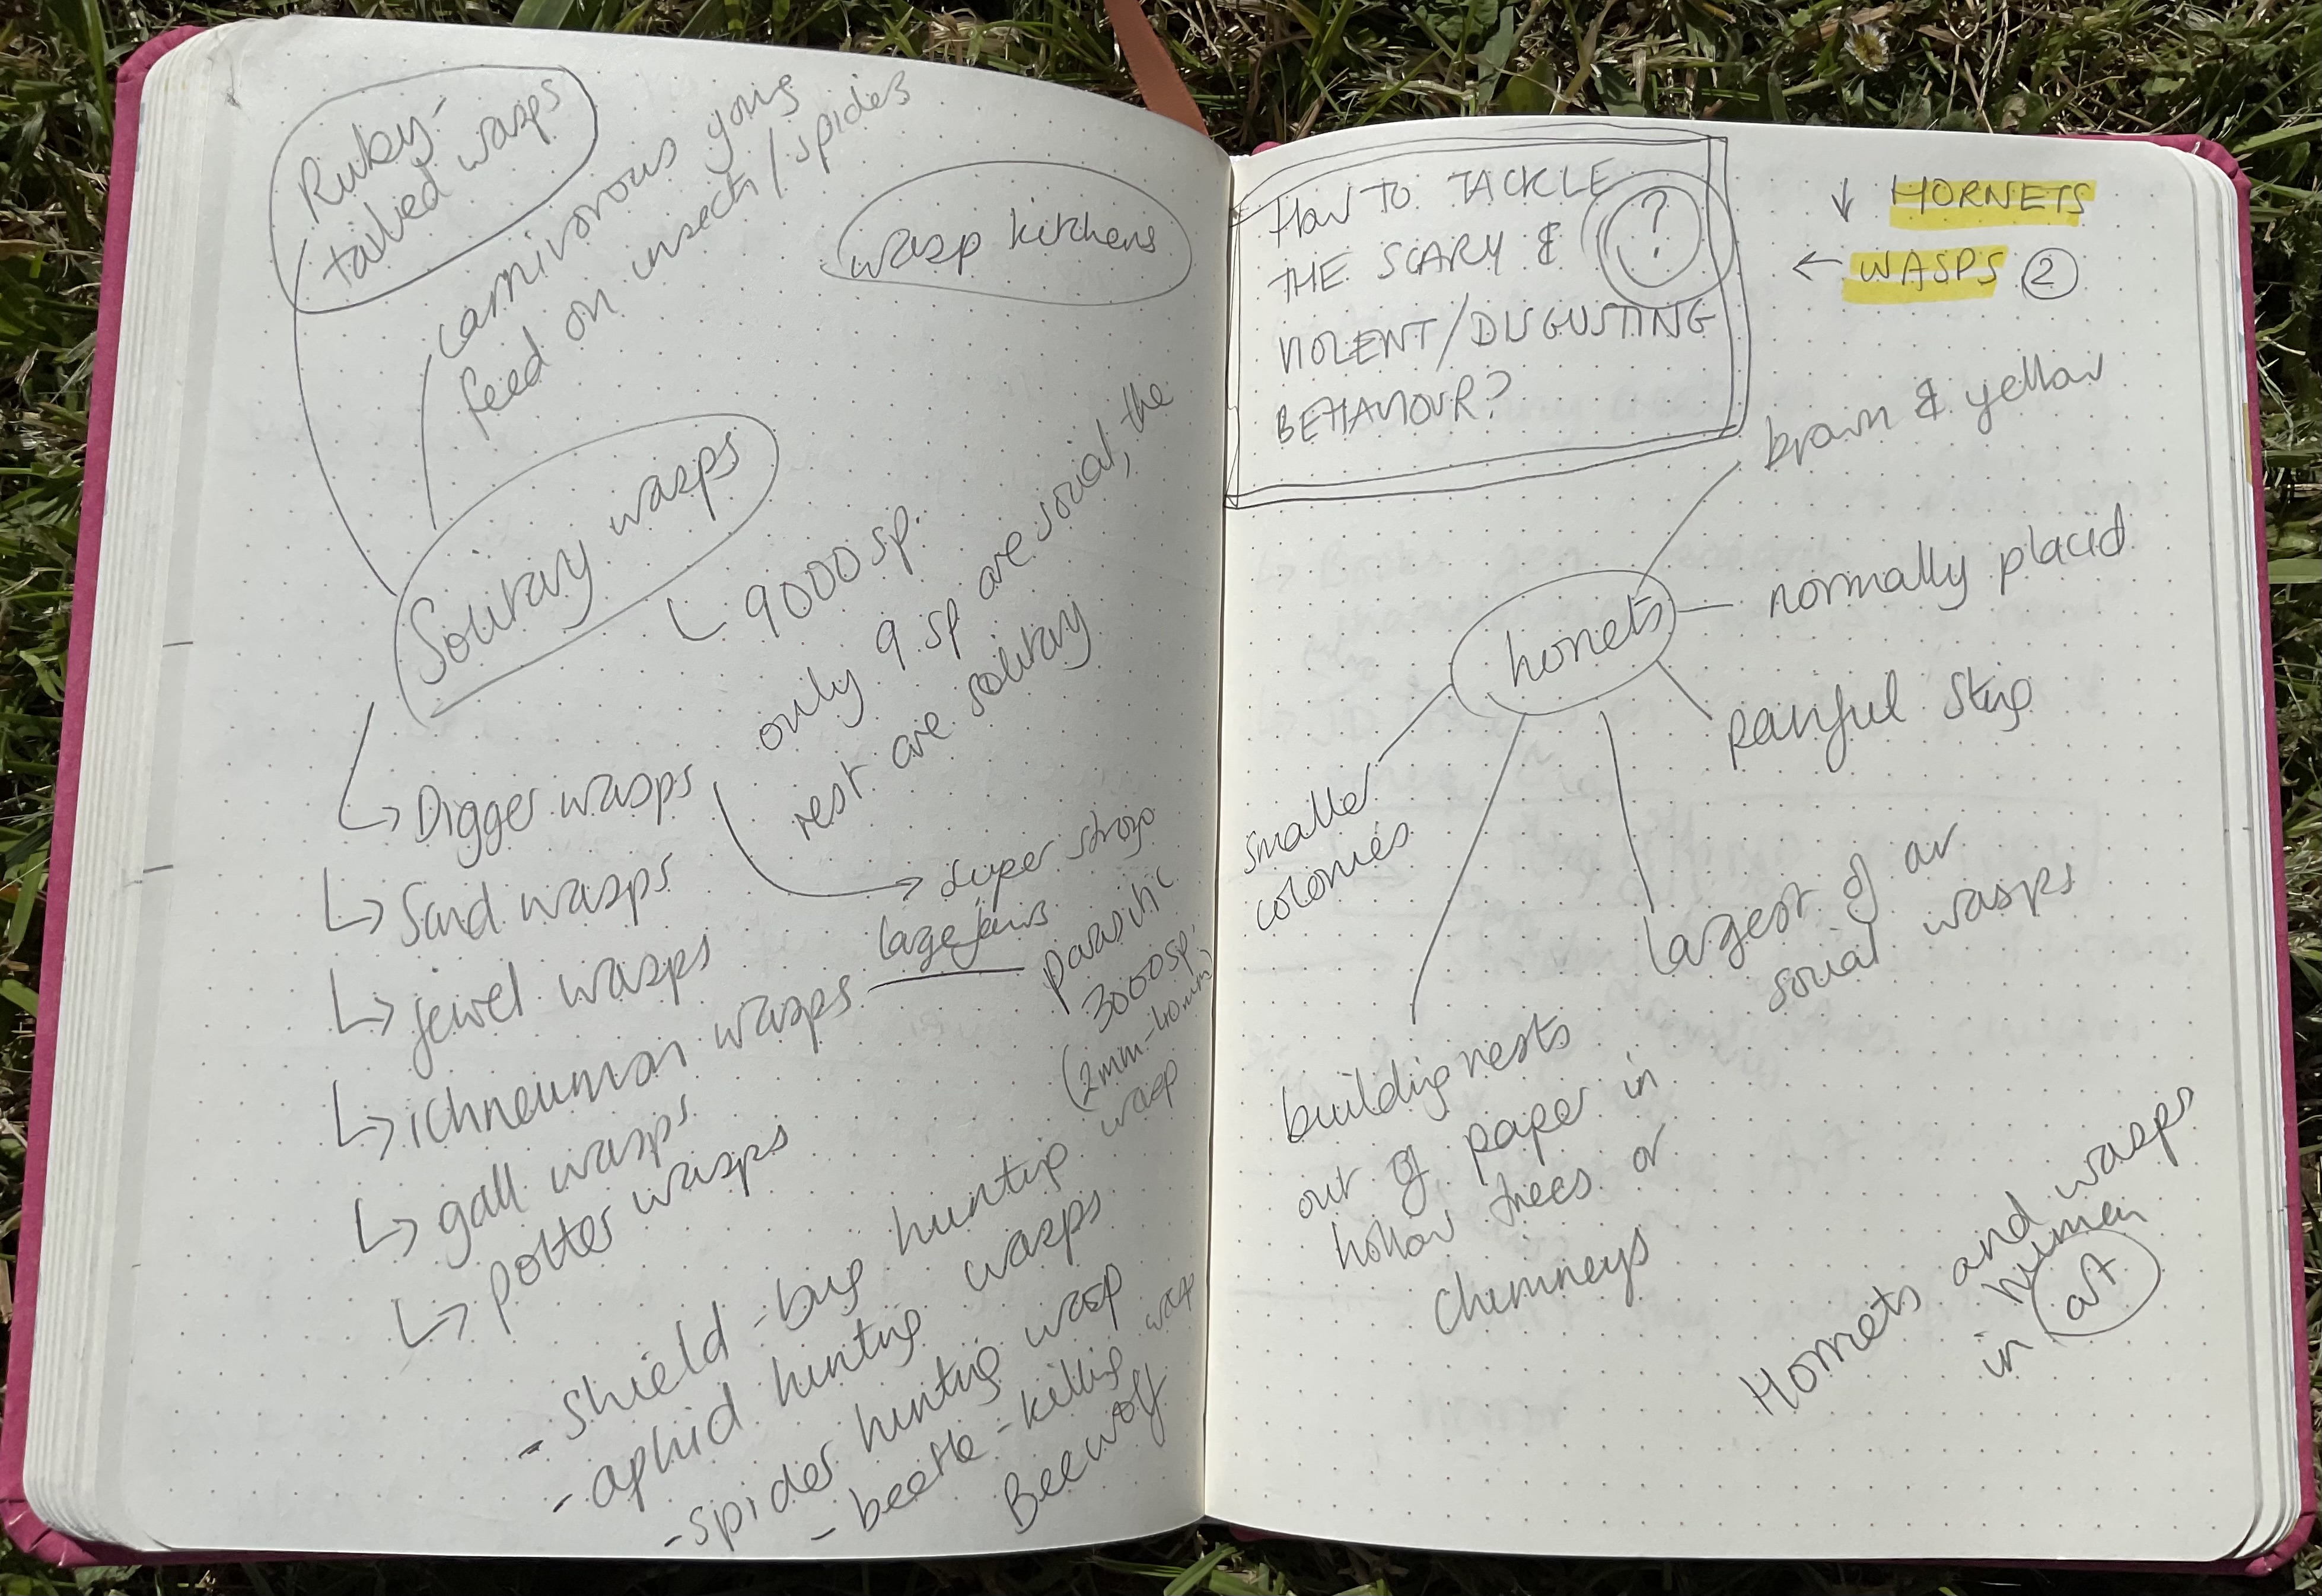 Ruby-
tailed wasps
carnivorous young
feed on insects/spiders
wasp kitchens
Solitary wasps
↳ 9000 sp.
only 9 sp are social, the
rest are solitary
↳ Digger wasps
→ super strong
large jaws
↳ Sand wasps
↳ jewel wasps
↳ ichneumon wasps — parasitic
3000 sp.
(2mm-40mm)
↳ gall wasps
↳ potter wasps
- shield-bug hunting wasp
- aphid hunting wasps
- spider hunting wasp
- beetle-killing wasp
Beewolf
HOW TO TACKLE
THE SCARY & ?
VIOLENT/DISGUSTING
BEHAVIOUR?
↓ HORNETS
← WASPS ②
hornets
brown & yellow
normally placid
painful sting
largest of our
social wasps
building nests
out of paper in
hollow trees or
chimneys
smaller
colonies
Hornets and wasps
in human
art